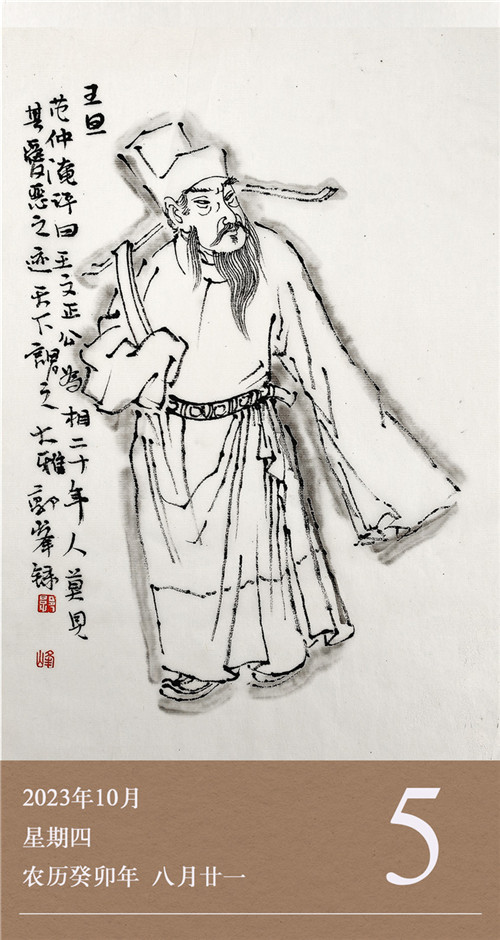 王旦
范仲淹评曰王文正公為相二十年人莫見
其愛惡之迹天下謂之大雅郭峯録
峰
2023年10月
星期四
农历癸卯年 八月廿一
5